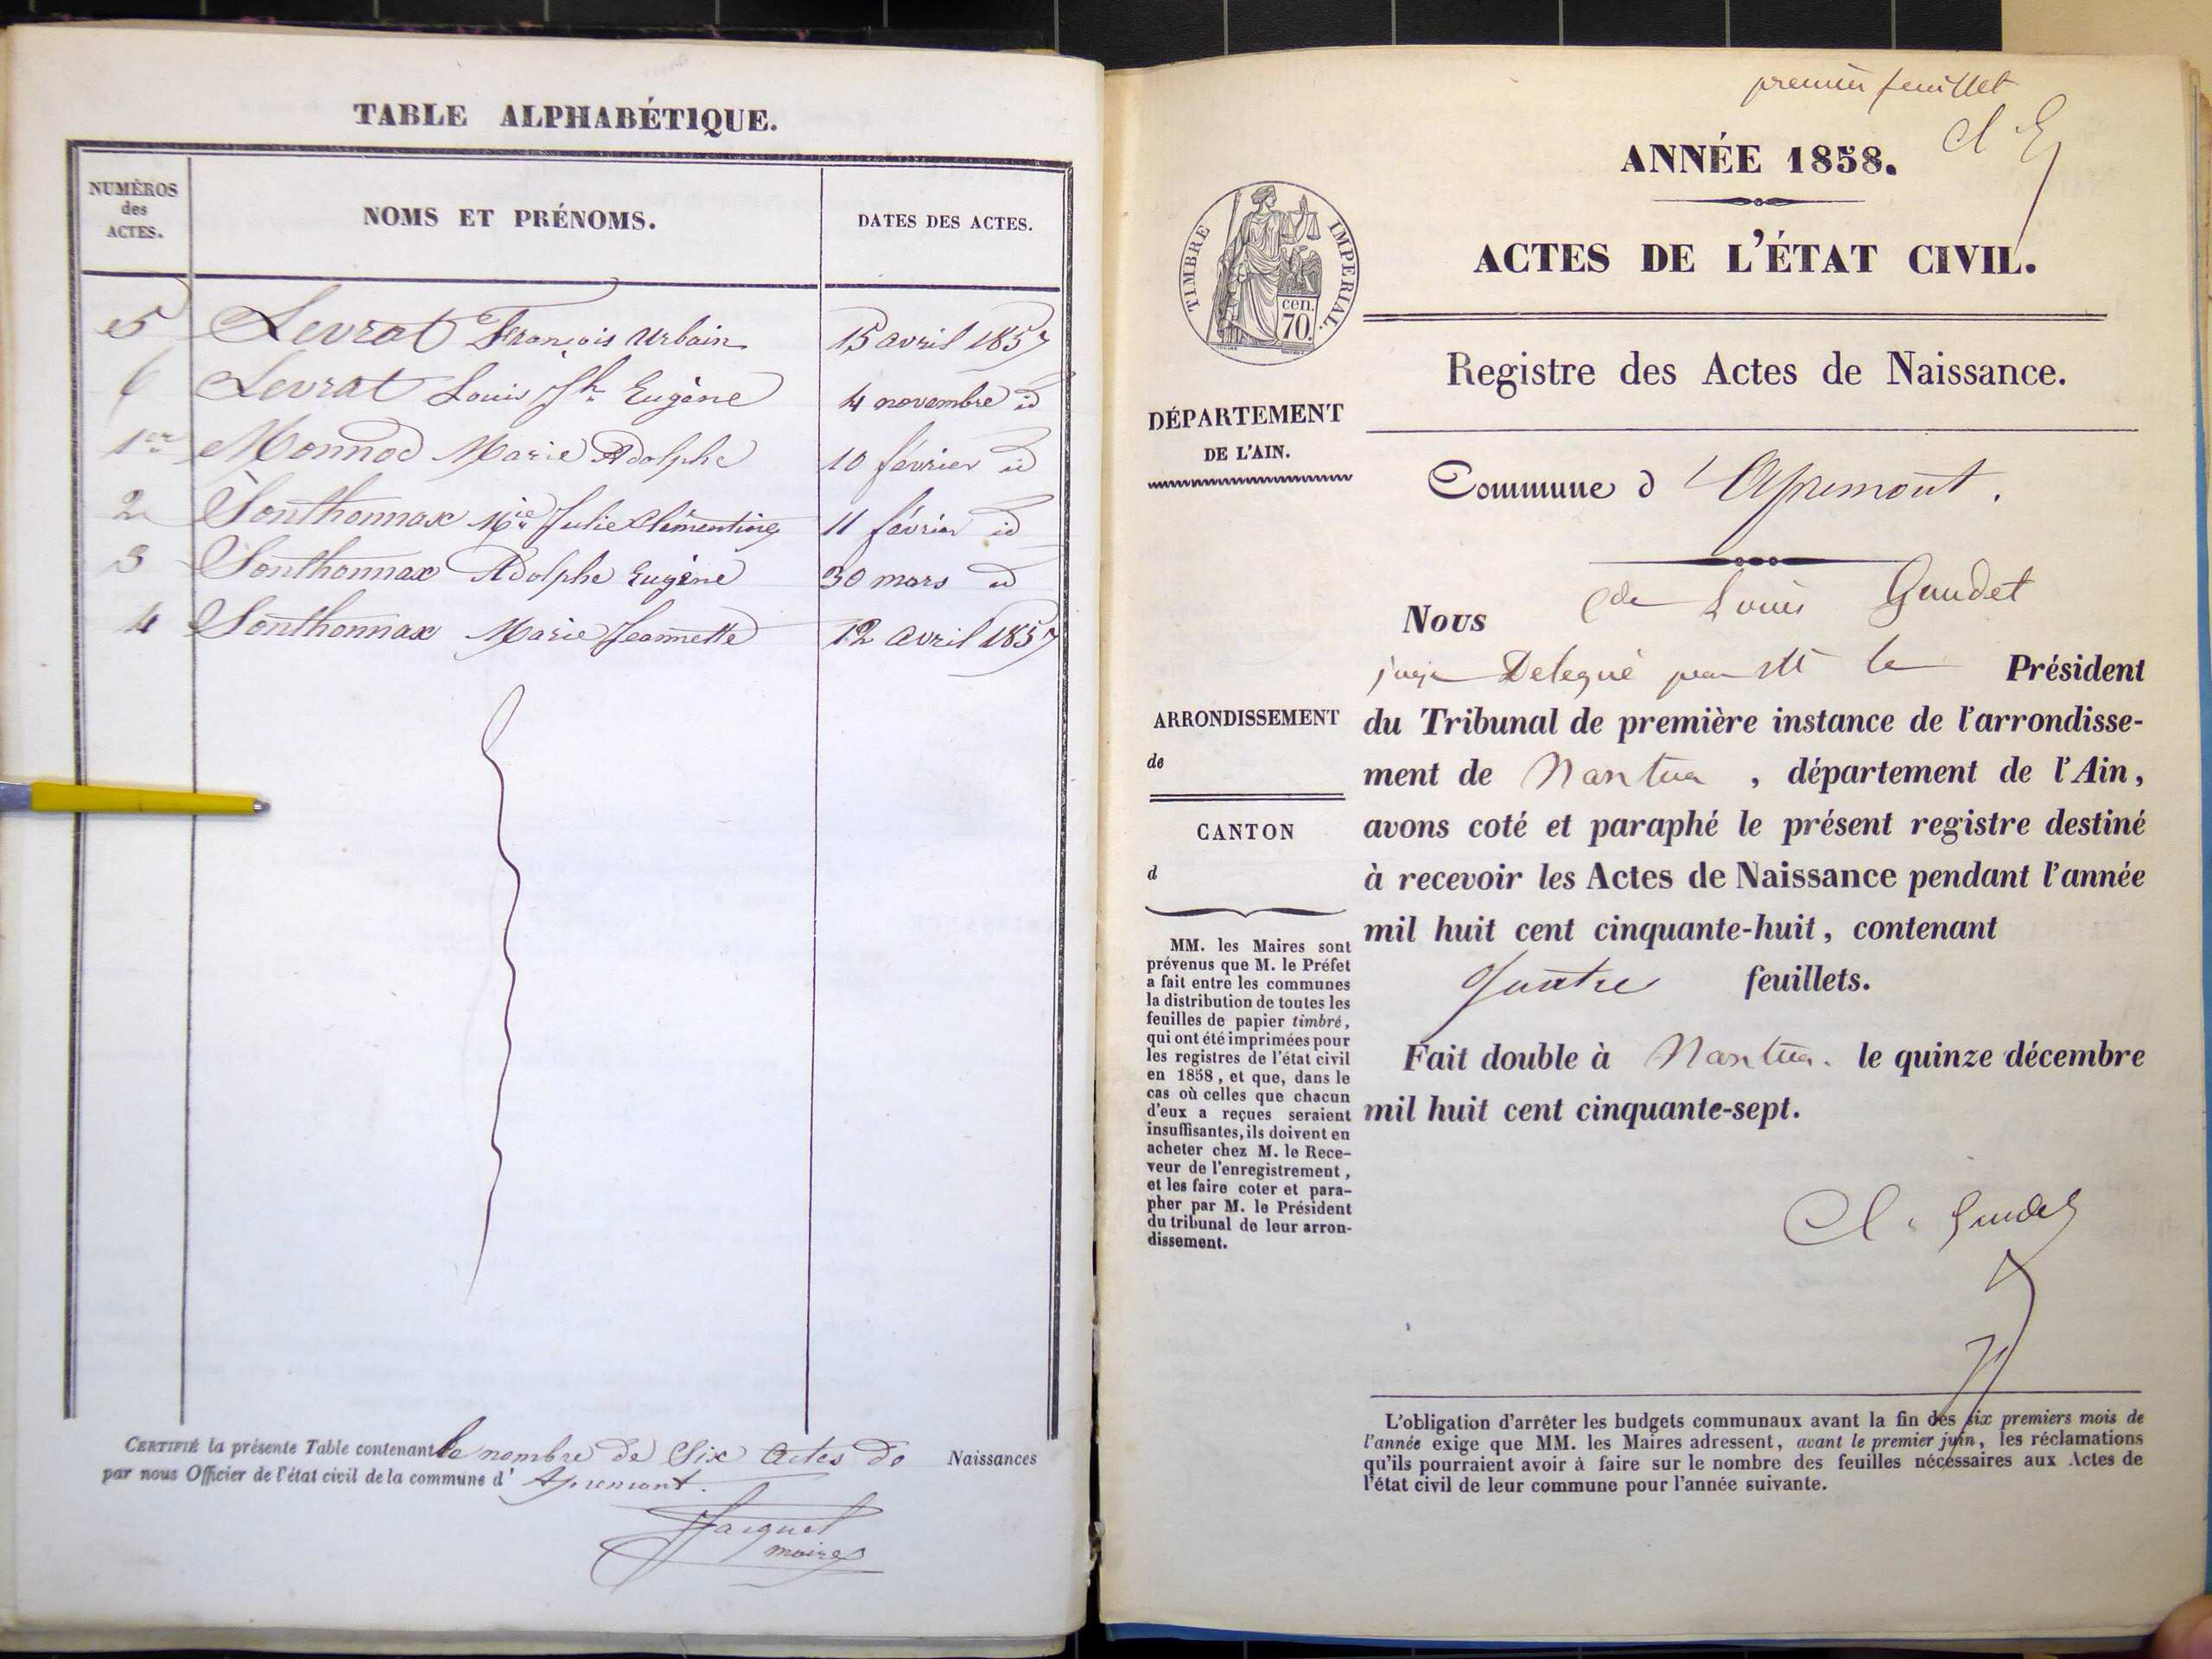 TABLE ALPHABÉTIQUE.
NUMÉROS des ACTES.
NOMS ET PRÉNOMS.
DATES DES ACTES.
5 Levrat François Urbain 15 avril 1857
6 Levrat Louis Jh Eugène 4 novembre id
1er Monnod Marie Adolphe 10 février id
2 Sonthonnax Mie Julie Clémentine 11 février id
3 Sonthonnax Adolphe Eugène 30 mars id
4 Sonthonnax Marie Jeannette 12 avril 1857
CERTIFIÉ la présente Table contenant le nombre de Six Actes de Naissances
par nous Officier de l'état civil de la commune d' Apremont.
Jacquet
maire
premier feuillet
ANNÉE 1858.
ACTES DE L'ÉTAT CIVIL.
TIMBRE IMPERIAL.
cen.
70.
Registre des Actes de Naissance.
DÉPARTEMENT
DE L'AIN.
Commune d'Apremont.
Nous Cde Louis Gaudet
juge Délégué par Mr le Président
ARRONDISSEMENT
de
du Tribunal de première instance de l'arrondisse-
ment de Nantua, département de l'Ain,
CANTON
d
avons coté et paraphé le présent registre destiné
à recevoir les Actes de Naissance pendant l'année
mil huit cent cinquante-huit, contenant
quatre feuillets.
Fait double à Nantua. le quinze décembre
mil huit cent cinquante-sept.
MM. les Maires sont
prévenus que M. le Préfet
a fait entre les communes
la distribution de toutes les
feuilles de papier timbré,
qui ont été imprimées pour
les registres de l'état civil
en 1858, et que, dans le
cas où celles que chacun
d'eux a reçues seraient
insuffisantes, ils doivent en
acheter chez M. le Rece-
veur de l'enregistrement,
et les faire coter et para-
pher par M. le Président
du tribunal de leur arron-
dissement.
Cl. Gaudet
L'obligation d'arrêter les budgets communaux avant la fin des six premiers mois de
l'année exige que MM. les Maires adressent, avant le premier juin, les réclamations
qu'ils pourraient avoir à faire sur le nombre des feuilles nécessaires aux Actes de
l'état civil de leur commune pour l'année suivante.